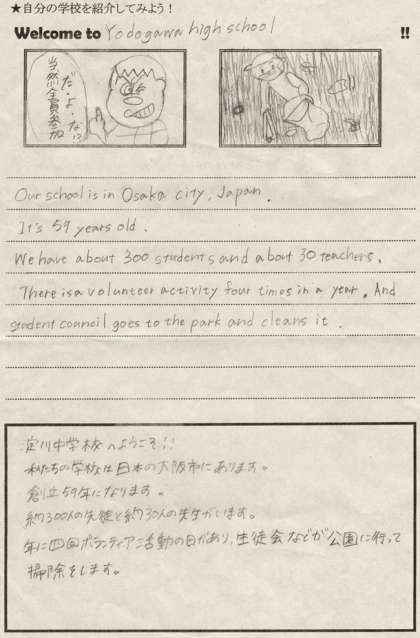 ★自分の学校を紹介してみよう！
Welcome to Yodogawa high school !!
当然全員参加
だ・よ・な!?
Our school is in Osaka city, Japan.
It's 59 years old.
We have about 300 students and about 30 teachers.
There is a volunteer activity four times in a year. And
student council goes to the park and cleans it.
淀川中学校へようこそ!!
私たちの学校は日本の大阪市にあります。
創立59年になります。
約300人の生徒と約30人の先生がいます。
年に四回ボランティア活動の日があり、生徒会などが公園に行って
掃除をします。